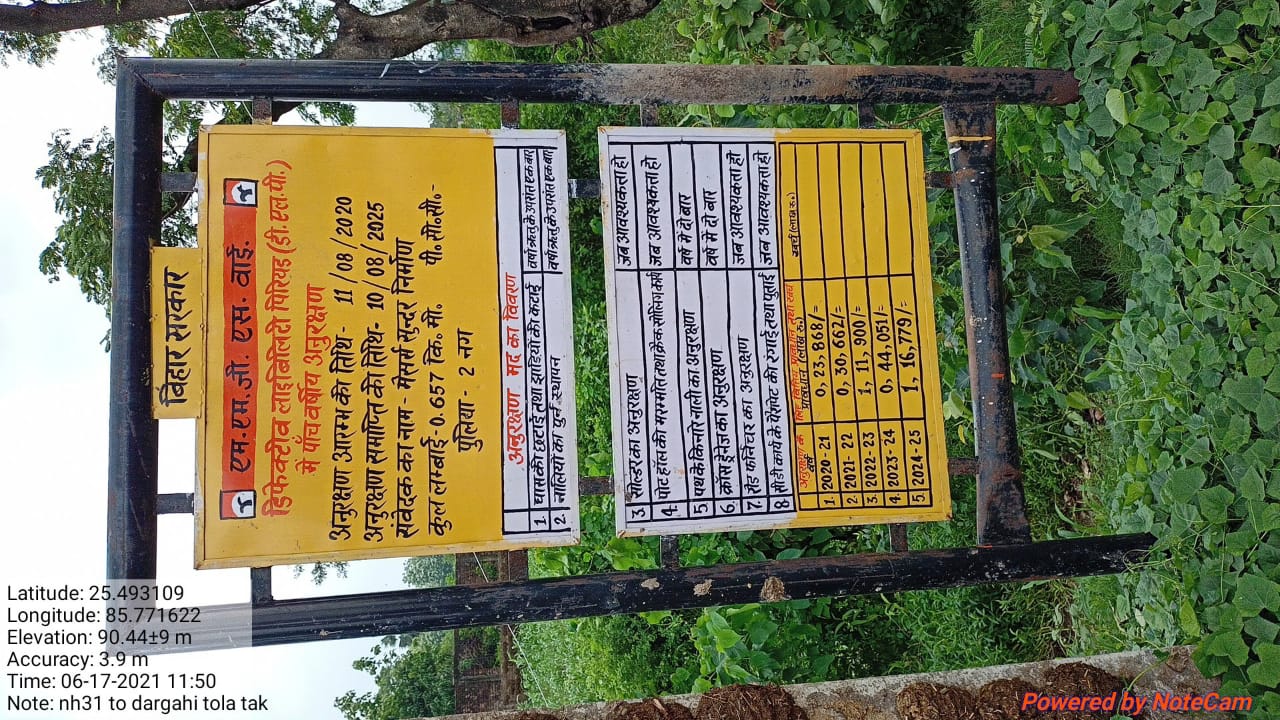 बिहार सरकार
एम.एम.जी. एस. वाई.
डिफेक्टीव लाइबिलिटी पिरियड (डी. एल.पी.)
में पाँच वर्षीय अनुरक्षण
अनुरक्षण आरम्भ की तिथि- 11/08/2020
अनुरक्षण समाप्ति की तिथि- 10/08/2025
संवेदक का नाम- मेसर्स सुन्दर निर्माण
कुल लम्बाई-0.657 कि. मी. पी॰ सी॰ सी॰-
पुलिया- 2 नग
अनुरक्षण मद का विवरण
1 घास की छटाई तथा झाड़ियों की कटाई वर्षा ऋतु के उपरांत एक बार
2 नालियों का पुर्न स्थापन वर्षा ऋतु के उपरांत एक बार
3 सोल्डर का अनुरक्षण जब आवश्यकता हो
4 पोट हॉल की मरम्मति तथा क्रेक सीलिंग कार्य जब आवश्यकता हो
5 पथ के किनारे नाली का अनुरक्षण वर्ष में दो बार
6 क्रॉस ड्रेनेज का अनुरक्षण वर्ष में दो बार
7 रोड फर्निचर का अनुरक्षण जब आवश्यकता हो
8 सी.डी कार्य के पैरापेट की रंगाई तथा पुताई जब आवश्यकता हो
अनुरक्षण के वर्ष प्रावधान (लाख रु.) खर्च (लाख रु.)
1. 2020-21 0,23,868/=
2 2021-22 0,30,662/=
3. 2022-23 1,11,900/=
4. 2023-24 0,44,051/=
5. 2024-25 1,16,779/=
Latitude: 25.493109
Longitude: 85.771622
Elevation: 90.44±9 m
Accuracy: 3.9 m
Time: 06-17-2021 11:50
Note: nh31 to dargahi tola tak
Powered by NoteCam